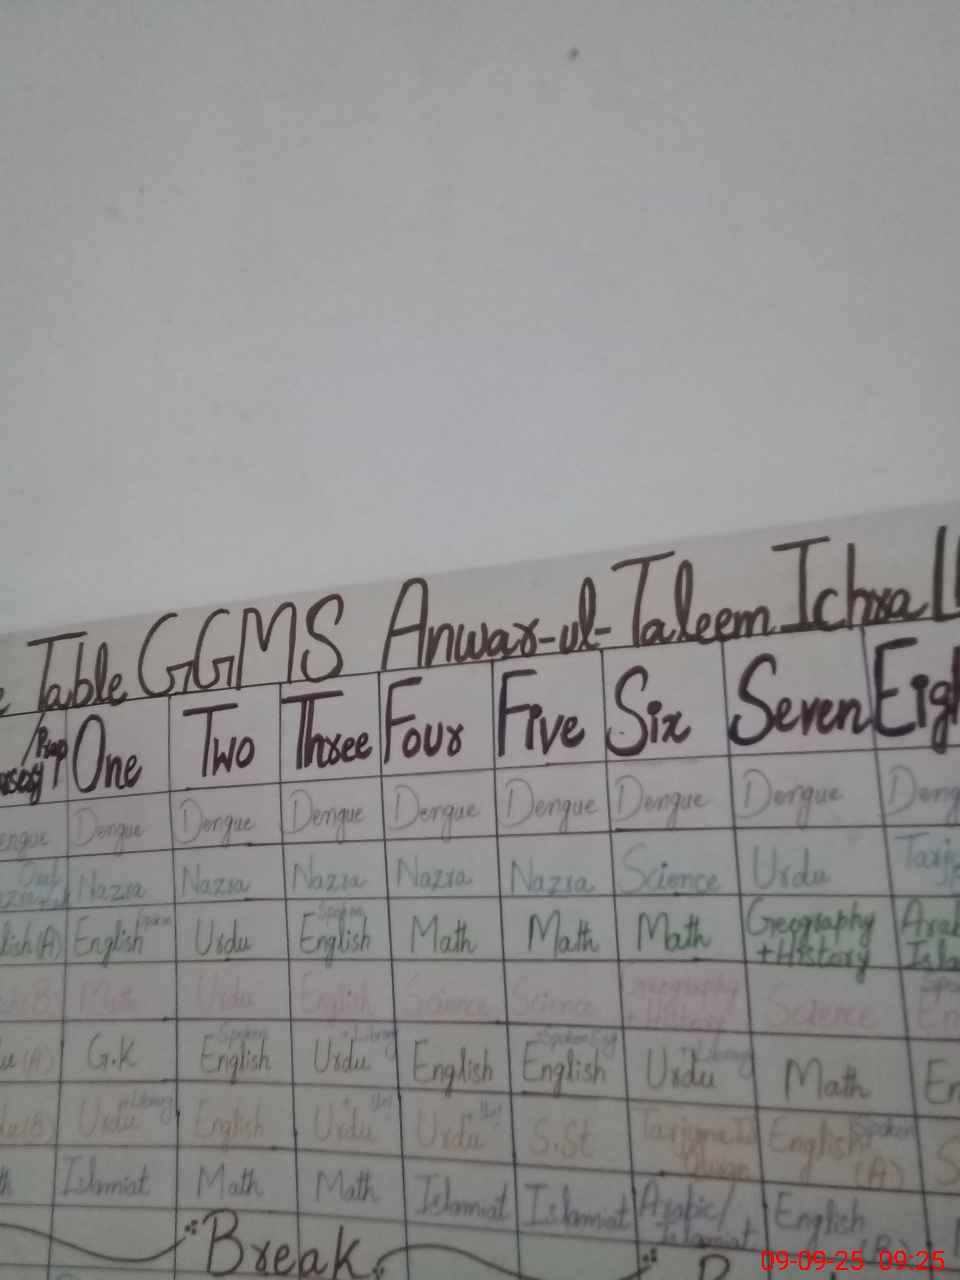 Table GGMS Anwar-ul-Taleem Ichra
Prep One Two Three Four Five Six Seven Eigh
engue Dengue Dengue Dengue Dengue Dengue Dengue Dengue Deng
Nazra Nazra Nazra Nazra Nazra Science Urdu Tarj
lish(A) English Spoken Urdu English Spoken Math Math Math Geography + History Arab Isla
(B) Math Urdu English Science Science Geography + History Science En
u(A) G.K English Spoken Urdu + Library English English Spoken Eng Urdu + Library Math En
(B) Urdu + Library English Urdu + Urdu + S.St English Spoken (A) S
h Islamiat Math Math Islamiat Islamiat Arabic/ Islamiat English (B)
Break
09-09-25 09:25